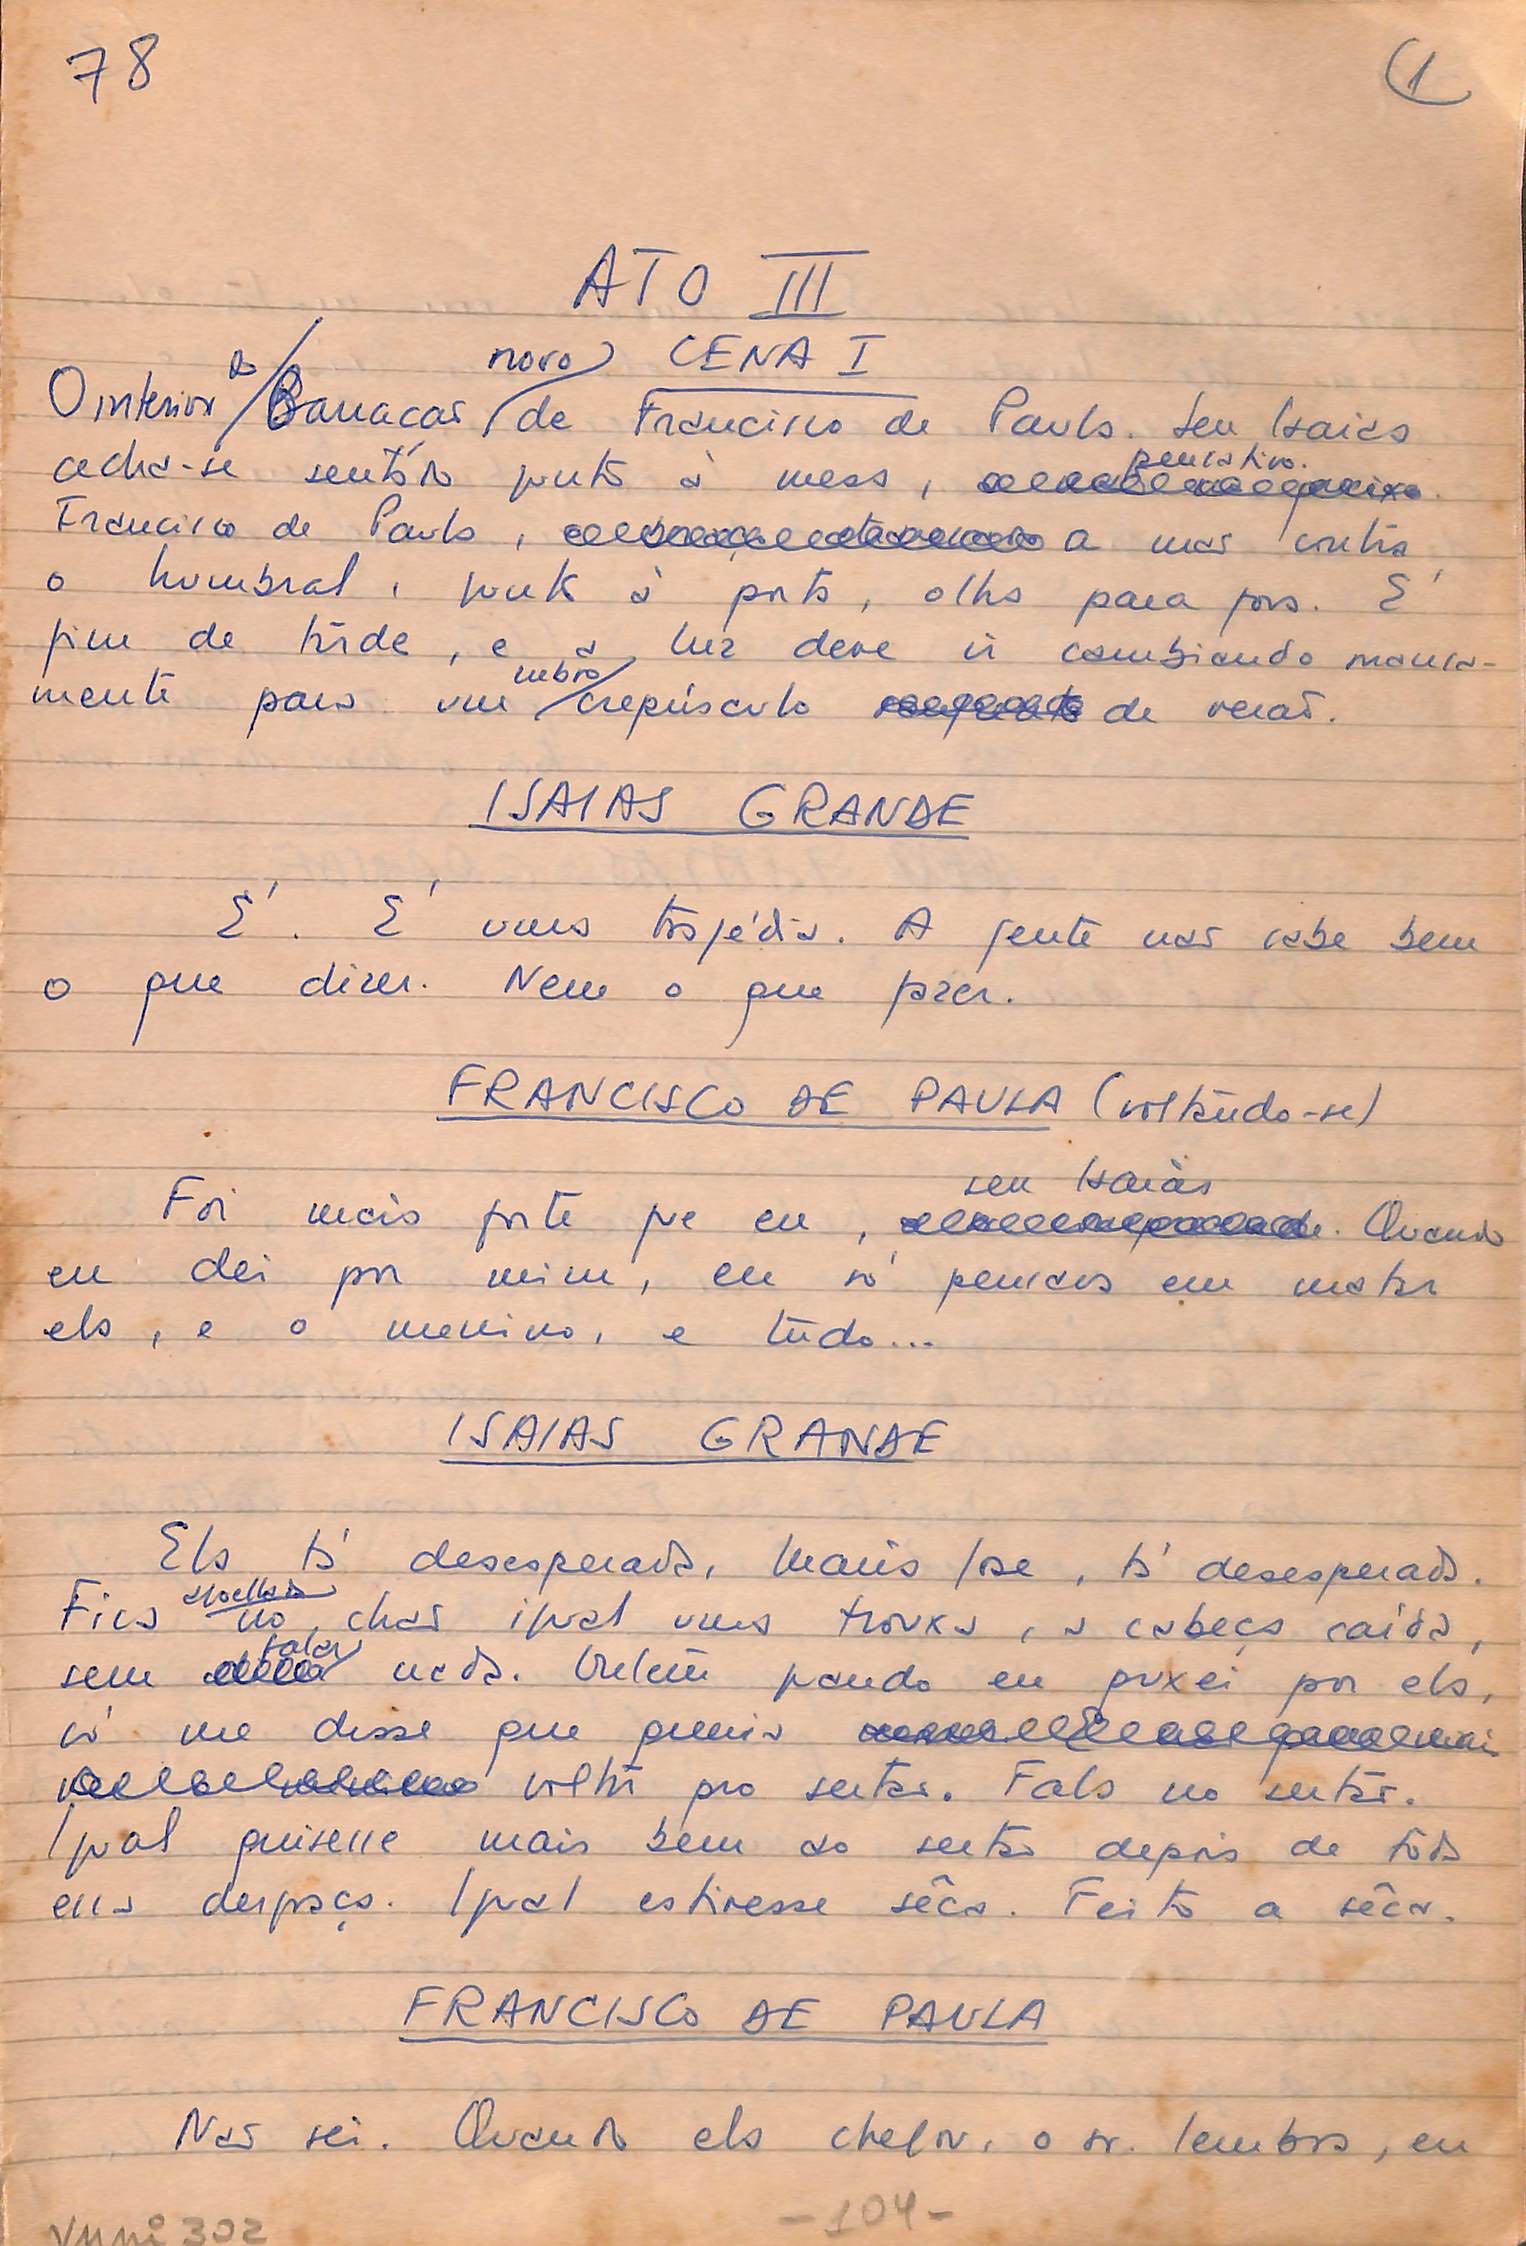 78
1
ATO III
CENA I
O interior do Barracão novo de Francisco de Paula. Seu Isaias
acha-se sentado junto à mesa, pensativo.
Francisco de Paula, a mão contra
o humbral, junto à porta, olha para fora. É
fim de tarde, e a luz deve ir cambiando mansa-
mente para um rubro crepúsculo de verão.
ISAIAS GRANDE
É. É uma tragédia. A gente não sabe bem
o que dizer. Nem o que fazer.
FRANCISCO DE PAULA (voltando-se)
Foi mais forte que eu, seu Isaías. Quando
eu dei por mim, eu só pensava em matar
ela, e o menino, e tudo...
ISAIAS GRANDE
Ela tá desesperada, Maria José, tá desesperada.
Fica ajoelhada no chão igual uma trouxa, a cabeça caída,
sem falar nada. Ontem quando eu puxei por ela,
só me disse que queria
voltar pro sertão. Fala no sertão.
Igual quisesse mais bem ao sertão depois de toda
essa desgraça. Igual estivesse sêca. Feito a sêca.
FRANCISCO DE PAULA
Não sei. Quando ela chegou, o sr. lembra, eu
-104-
VMpi 302